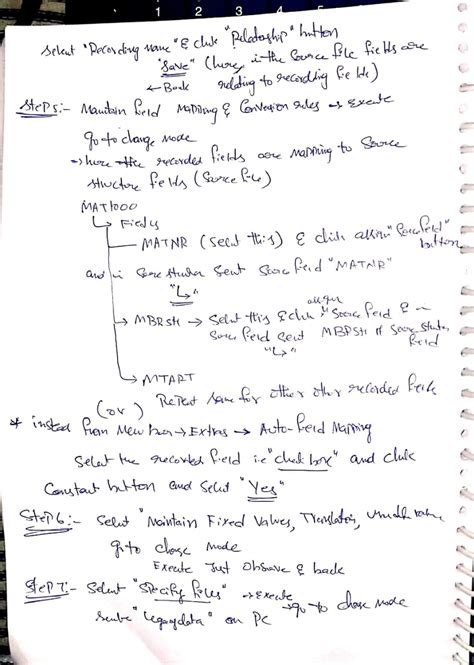 1 2 3 4 5
Select "Recording name" & click "Relationship" button
"Save" (here, in the Source file fields are
← Back relating to recording fields)
Step5:- Maintain field Mapping & Conversion rules → Execute
go to change mode
→ here the recorded fields are mapping to Source
structure fields (Source file)
MAT1000
↳ Fields
MATNR (Select this) & click assign "Source field" button
and in Source structure Select Source field "MATNR"
"↳"
→ MBRSH → Select this & click assign "Source field & in
Source field Select MBRSH of Source structure
field
"↳"
→ MTART
Repeat same for other other recorded fields
(or)
* instead from Menu bar → Extras → Auto-field Mapping
Select the recorded field i.e "check box" and click
Constant button and Select "Yes"
Step6:- Select "Maintain Fixed Values, Translation,
go to change mode
Execute Just Observe & back
Step7:- Select "Specify files" → Execute
→ go to change mode
"Legacydata" on PC